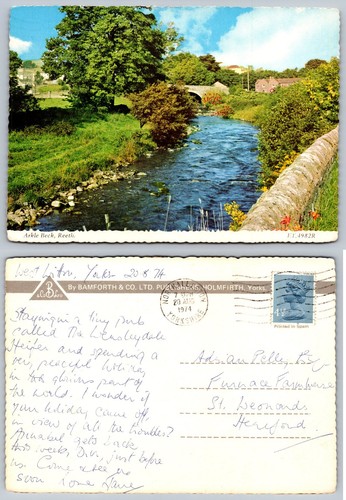 Arkle Beck, Reeth.
ET.4982R
West Witton, Yorks 20 8 74
B
By BAMFORTH & CO. LTD. PUBLISHERS, HOLMFIRTH, Yorks
20 AUG
1974
YORKSHIRE
Printed in Spain
Staying in a tiny pub
called The Wensleydale
Heifer and spending a
very peaceful holiday
in this glorious part of
the world. I wonder if
your holiday came off
in view of all the troubles?
gets back
this week, just before
us Come
soon love
Adrian Pelly
Furnace Farmhouse
St. Leonards
Hereford